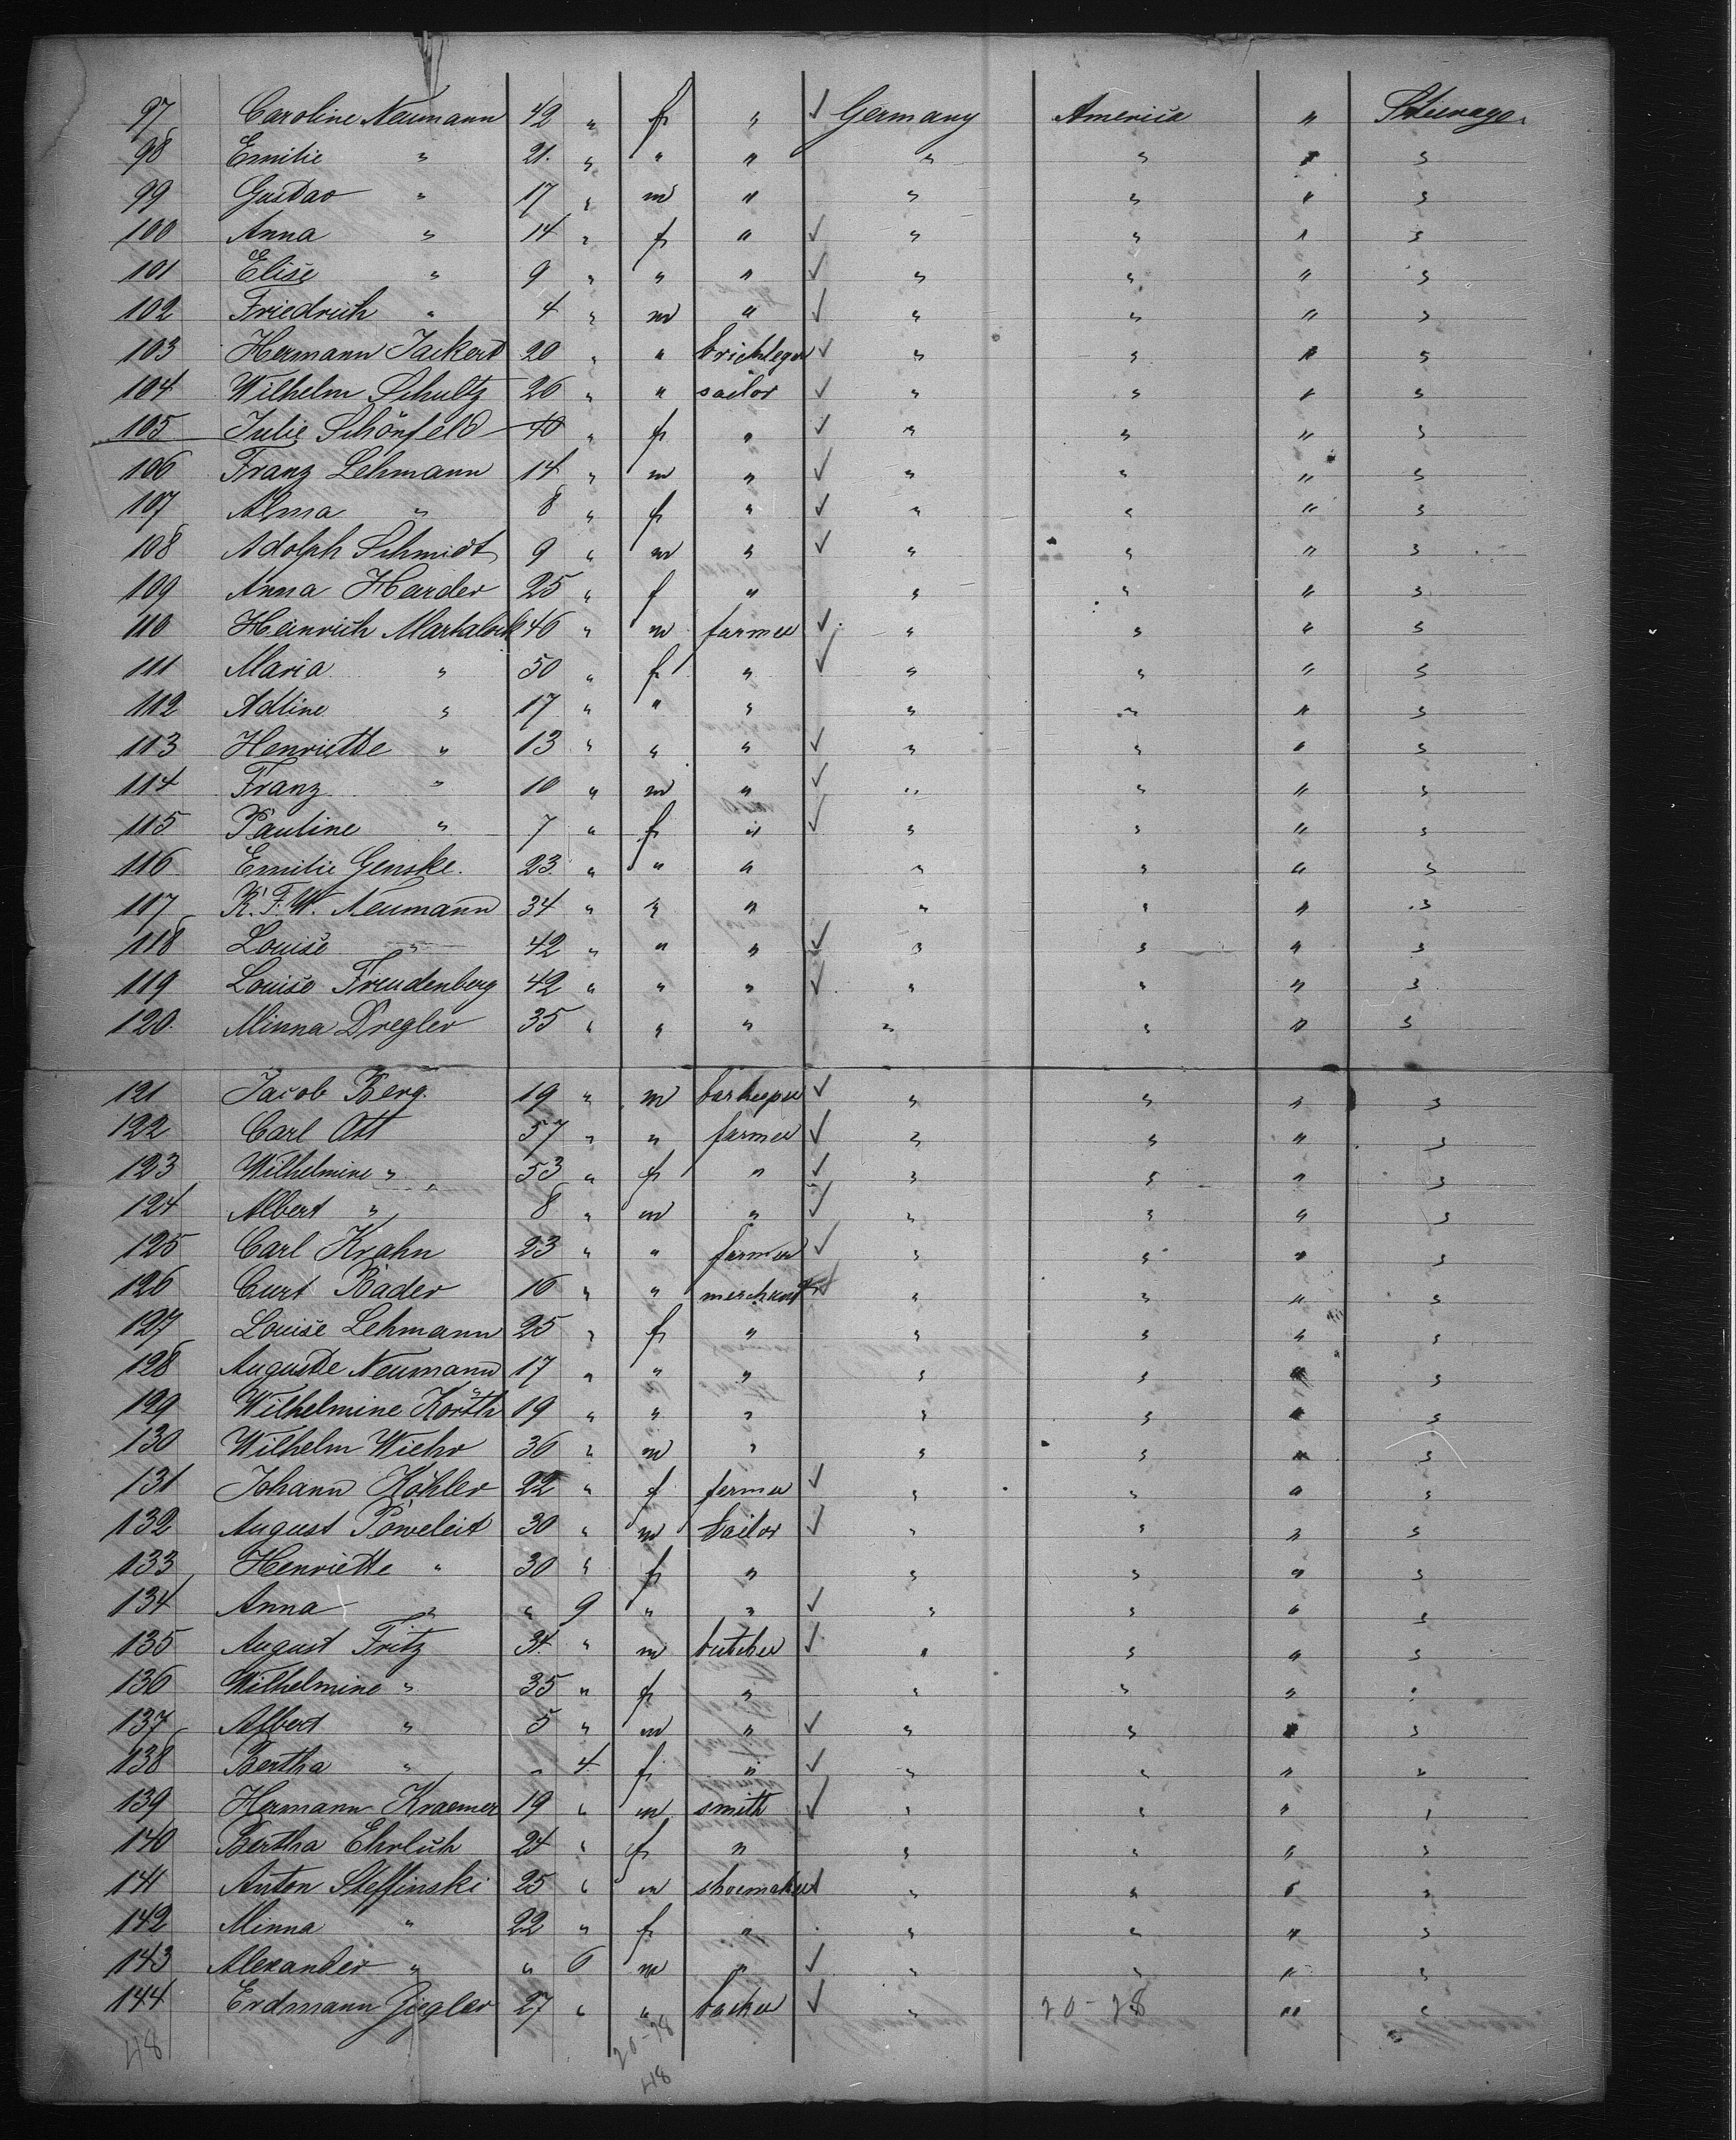 97 Caroline Neumann 42 " f " ✓ Germany America " Steerage.
98 Emilie " 21. " " " " " " "
99 Gustav " 17 " m " " " " "
100 Anna " 14 " f " ✓ " " " "
101 Elise " 9 " " " ✓ " " " "
102 Friedrich " 4 " m " ✓ " " " "
103 Hermann Jackert 20 " " brickleger ✓ " " " "
104 Wilhelm Schultz 26 " " sailor ✓ " " " "
105 Julie Schönfeld 40 " f " ✓ " " " "
106 Franz Lehmann 14 " m " ✓ " " " "
107 Alma " 8 " f " ✓ " " " "
108 Adolph Schmidt 9 " m " ✓ " " " "
109 Anna Harder 25 " f " " " " "
110 Heinrich 46 " m farmer ✓ " " " "
111 Maria " 50 " f " ✓ " " " "
112 Adline " 17 " " " " " " "
113 Henriette " 13 " " " ✓ " " " "
114 Franz " 10 " m " ✓ " " " "
115 Pauline " 7 " f " ✓ " " " "
116 Emilie Genske. 23. " " " " " " "
117 K. F. W. Neumann 34 " " " " " " "
118 Louise " 42 " " " ✓ " " " "
119 Louise Freudenberg 42 " " " ✓ " " " "
120. Minna Dregler 35 " " " " " " "
121 Jacob Berg. 19 " m barkeeper ✓ " " " "
122 Carl Ott 57 " " farmer ✓ " " " "
123 Wilhelmine " 53 " f " ✓ " " " "
124 Albert " 8 " m " ✓ " " " "
125 Carl Krahn 23 " " farmer ✓ " " " "
126 Curt Bader 16 " " merchant ✓ " " " "
127 Louise Lehmann 25 " f " " " " "
128 Auguste Neumann 17 " " " " " " "
129 Wilhelmine Korth 19 " " " " " " "
130 Wilhelm Wiehr 36 " m " " " " "
131 Johann Köhler 22 " f farmer ✓ " " " "
132 August Poweleit 30 " m tailor ✓ " " " "
133 Henriette " 30 " f " " " " "
134 Anna " " 9 " " ✓ " " " "
135 August Fritz 34. " m butcher ✓ " " " "
136 Wilhelmine " 35 " f " " " " "
137 Albert " 5 " m " ✓ " " " "
138 Bertha " " 4 f " ✓ " " " "
139 Hermann Kraemer 19 " m smith ✓ " " " "
140 Bertha Ehrlich 24 " f " " " " "
141 Anton Steffinski 25 " m shoemaker ✓ " " " "
142 Minna " 22 " f " " " " "
143 Alexander " " 6 m " ✓ " " " "
144 Erdmann Ziegler 27 " " backer ✓ " 20-28 " "
48 20-28
48